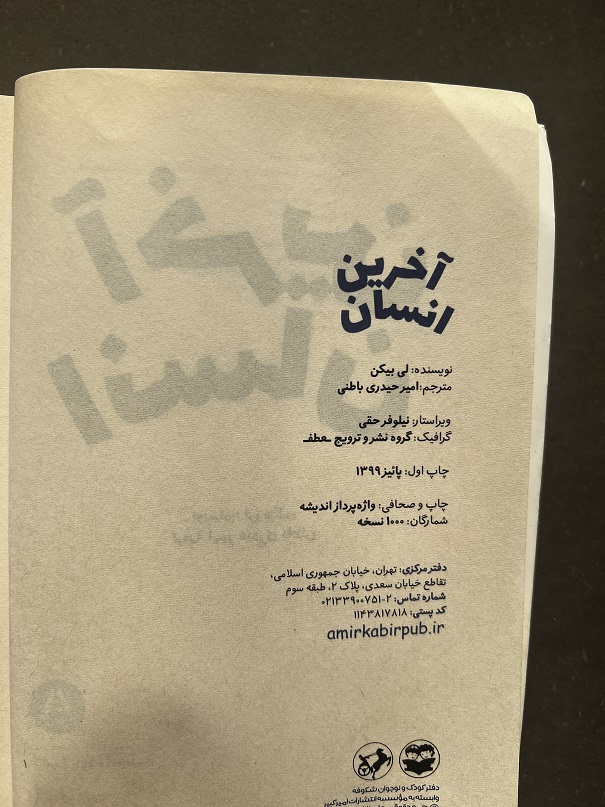 آخرین
انسان
نویسنده: لی بیکن
مترجم: امیر حیدری باطنی
ویراستار: نیلوفر حقی
گرافیک: گروه نشر و ترویج ـعطفـ
چاپ اول: پائیز ۱۳۹۹
چاپ و صحافی: واژه‌پرداز اندیشه
شمارگان: ۱۰۰۰ نسخه
دفتر مرکزی: تهران، خیابان جمهوری اسلامی،
تقاطع خیابان سعدی، پلاک ۲، طبقه سوم
شماره تماس: ۲-۰۲۱۳۳۹۰۰۷۵۱
کد پستی: ۱۱۴۳۸۱۷۸۱۸
amirkabirpub.ir
دفتر کودک و نوجوان شکوفه
وابسته به مؤسسه انتشارات امیرکبیر